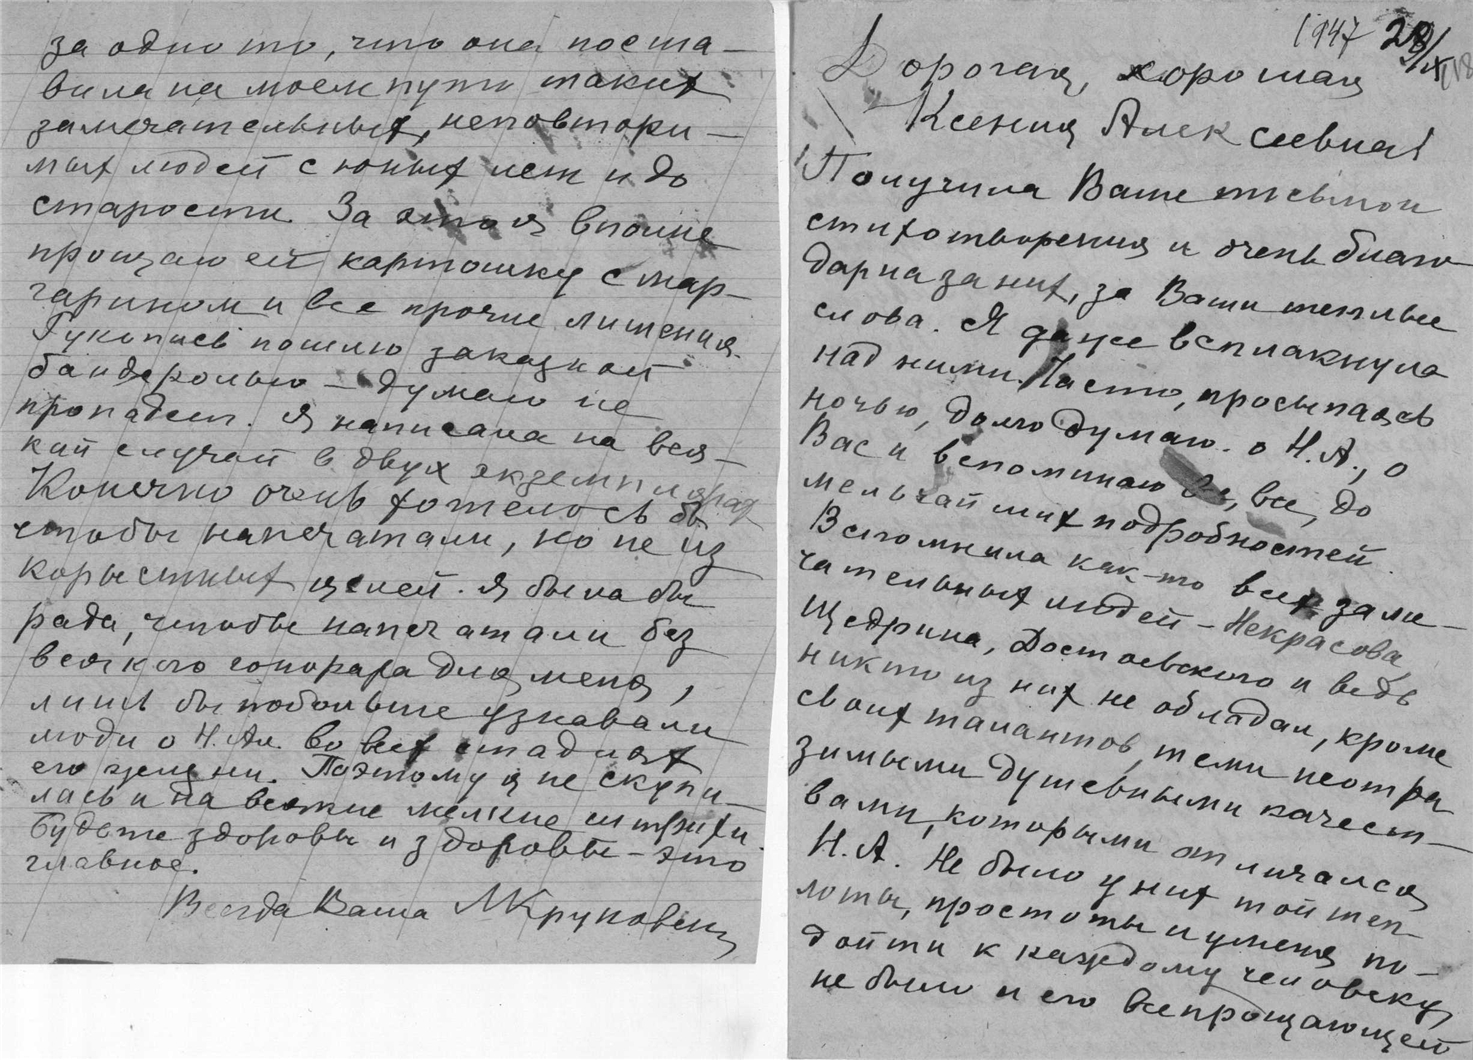 1947 28/IX
Дорогая, хорошая
Ксения Алексеевна!
Получила Ваше письмо и
стихотворения и очень благо
дарна за них, за Ваши теплые
слова. Я даже всплакнула
над ними. Часто, просыпаясь
ночью, долго думаю о Н.А., о
Вас и вспоминаю все, до
мельчайших подробностей.
Вспомнила как-то всех заме-
чательных людей – Некрасова,
Щедрина, Достоевского и ведь
никто из них не обладал, кроме
своих талантов, теми неотра
зимыми душевными качест-
вами, которыми отличался
Н.А. Не было у них той теп-
лоты, простоты и уменья по-
дойти к каждому человеку,
не было и его всепрощающей
за одно то, что она поста-
вила на моем пути таких
замечательных, неповтори-
мых людей с юных лет и до
старости. За это я вполне
прощаю ей картошку с мар-
гарином и все прочие лишения.
Рукопись пошлю заказной
бандеролью – думаю не
пропадет. Я написала на вся-
кий случай в двух экземплярах
Конечно очень хотелось бы
чтобы напечатали, но не из
корыстных целей. Я была бы
рада, чтобы напечатали без
всякого гонорара для меня,
лишь бы побольше узнавали
люди о Н. Ал. во всех стадиях
его жизни. Поэтому я не скупи-
лась и на всякие мелкие штрихи.
Будьте здоровы и здоровы – это
главное.
Всегда Ваша М Круковск